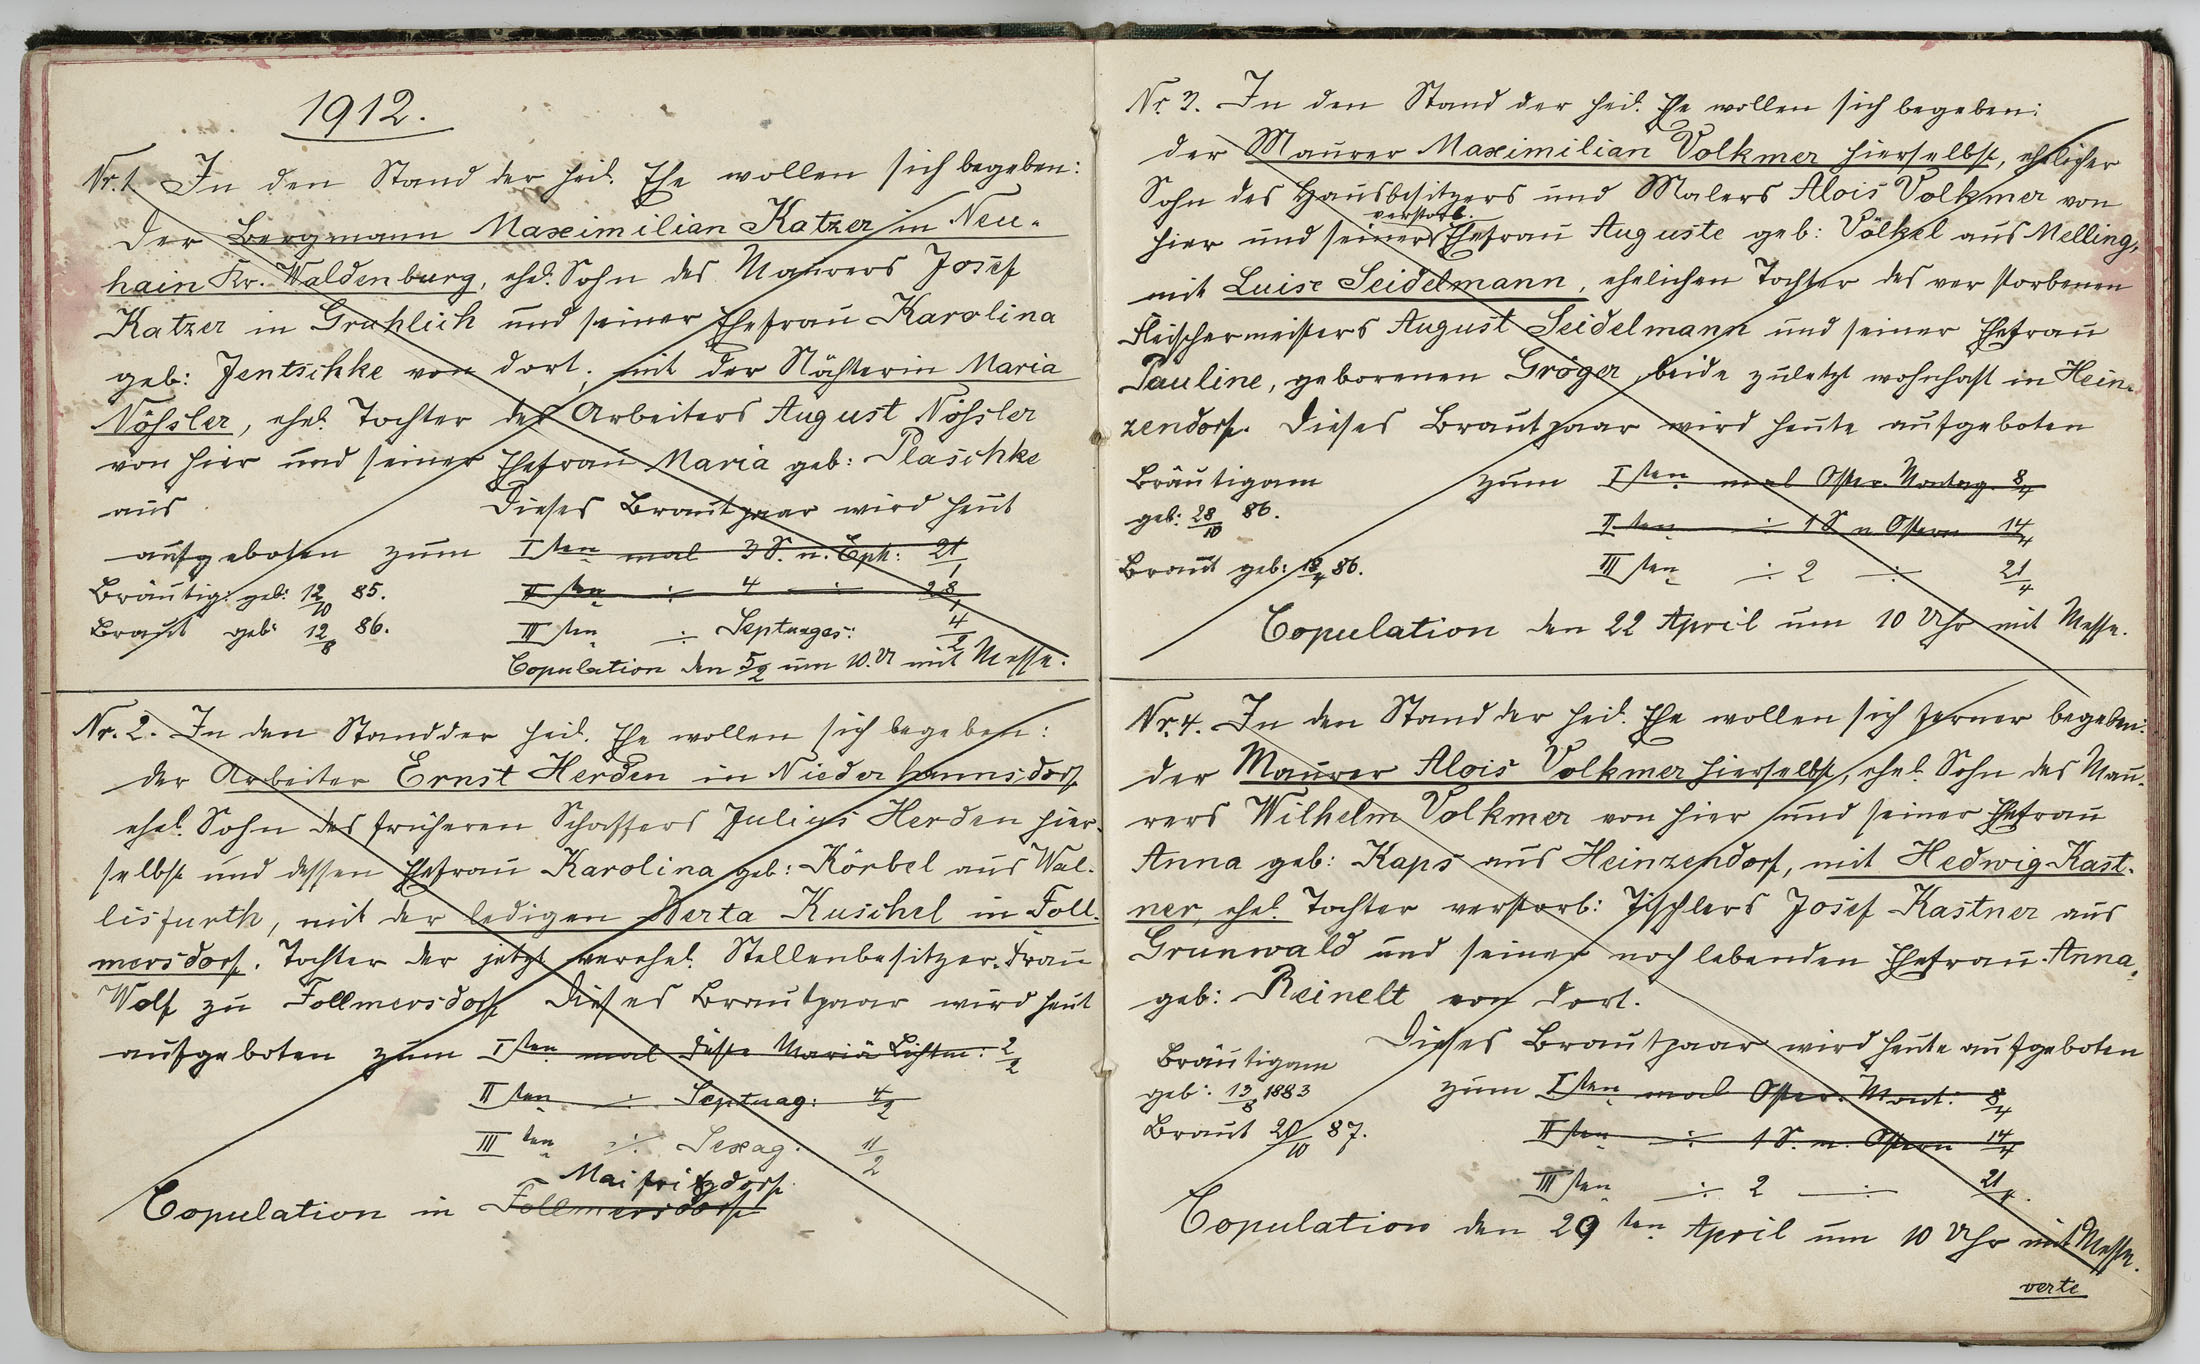 1912.
Nr. 1. In den Stand der heil. Ehe wollen sich begeben:
der Bergmann Maximilian Katzer in Neu-
hain Kr. Waldenburg, ehel. Sohn des Maurers Josef
Katzer in Gruhlich und seiner Ehefrau Karolina
geb: Jentschke von dort, mit der Nähterin Maria
Nößler, ehel. Tochter des Arbeiters August Nößler
von hier und seiner Ehefrau Maria geb: Plaschke
aus Dieses Brautpaar wird heut
aufgeboten zum Isten mal 3 S. n. Eph: 21/1
Bräutig: geb: 12/10 85. IIten ÷ 4 ÷ 28/1
Braut geb: 12/8 86. IIIten ÷ Septuages: 4/2
Copulation den 5/2 um 10. U mit Messe.
Nr. 2. In den Stand der heil. Ehe wollen sich begeben:
der Arbeiter Ernst Herden in Niederhannsdorf
ehel. Sohn des früheren Schaffers Julius Herden hier-
selbst und dessen Ehefrau Karolina geb: Körbel aus Wal-
lisfurth, mit der ledigen Berta Kuschel in Foll-
mersdorf. Tochter der jetzt verehel. Stellenbesitzer-Frau
Wolf zu Follmersdorf Dieses Brautpaar wird heut
aufgeboten zum Isten mal Feste Mariä Lichtm: 2/2
IIten ÷ Septuag: 4/2
IIIten ÷ Sexag. 11/2
Maifritzdorf
Copulation in Follmersdorf
Nr. 3. In den Stand der heil. Ehe wollen sich begeben:
der Maurer Maximilian Volkmer hierselbst, ehelicher
Sohn des Hausbesitzers und Malers Alois Volkmer von
verstorb.
hier und seiner Ehefrau Auguste geb: Völkel aus Melling,
mit Luise Seidelmann, ehelichen Tochter des verstorbenen
Fleischermeisters August Seidelmann und seiner Ehefrau
Pauline, geborenen Gröger, beide zuletzt wohnhaft in Hein-
zendorf. Dieses Brautpaar wird heute aufgeboten
Bräutigam zum Isten mal Oster-Montag 8/4
geb: 28/10 86. IIten ÷ 1 S n Ostern 14/4
Braut geb: 18/4 86. IIIten ÷ 2 ÷ 21/4
Copulation den 22 April um 10 Uhr mit Messe.
Nr. 4. In den Stand der heil. Ehe wollen sich ferner begeben:
der Maurer Alois Volkmer hierselbst, ehel. Sohn des Mau-
rers Wilhelm Volkmer von hier und seiner Ehefrau
Anna geb: Kaps aus Heinzendorf, mit Hedwig Kast-
ner, ehel. Tochter verstorb: Tischlers Josef Kastner aus
Grunwald und seiner noch lebenden Ehefrau Anna,
geb: Reinelt von dort.
Dieses Brautpaar wird heute aufgeboten
Bräutigam
geb: 13/8 1883 zum Isten mal Oster-Mont: 8/4
Braut 20/10 87. IIten ÷ 1 S. n. Ostern 14/4
IIIten ÷ 2 ÷ 21/4.
Copulation den 29ten April um 10 Uhr mit Messe.
verte